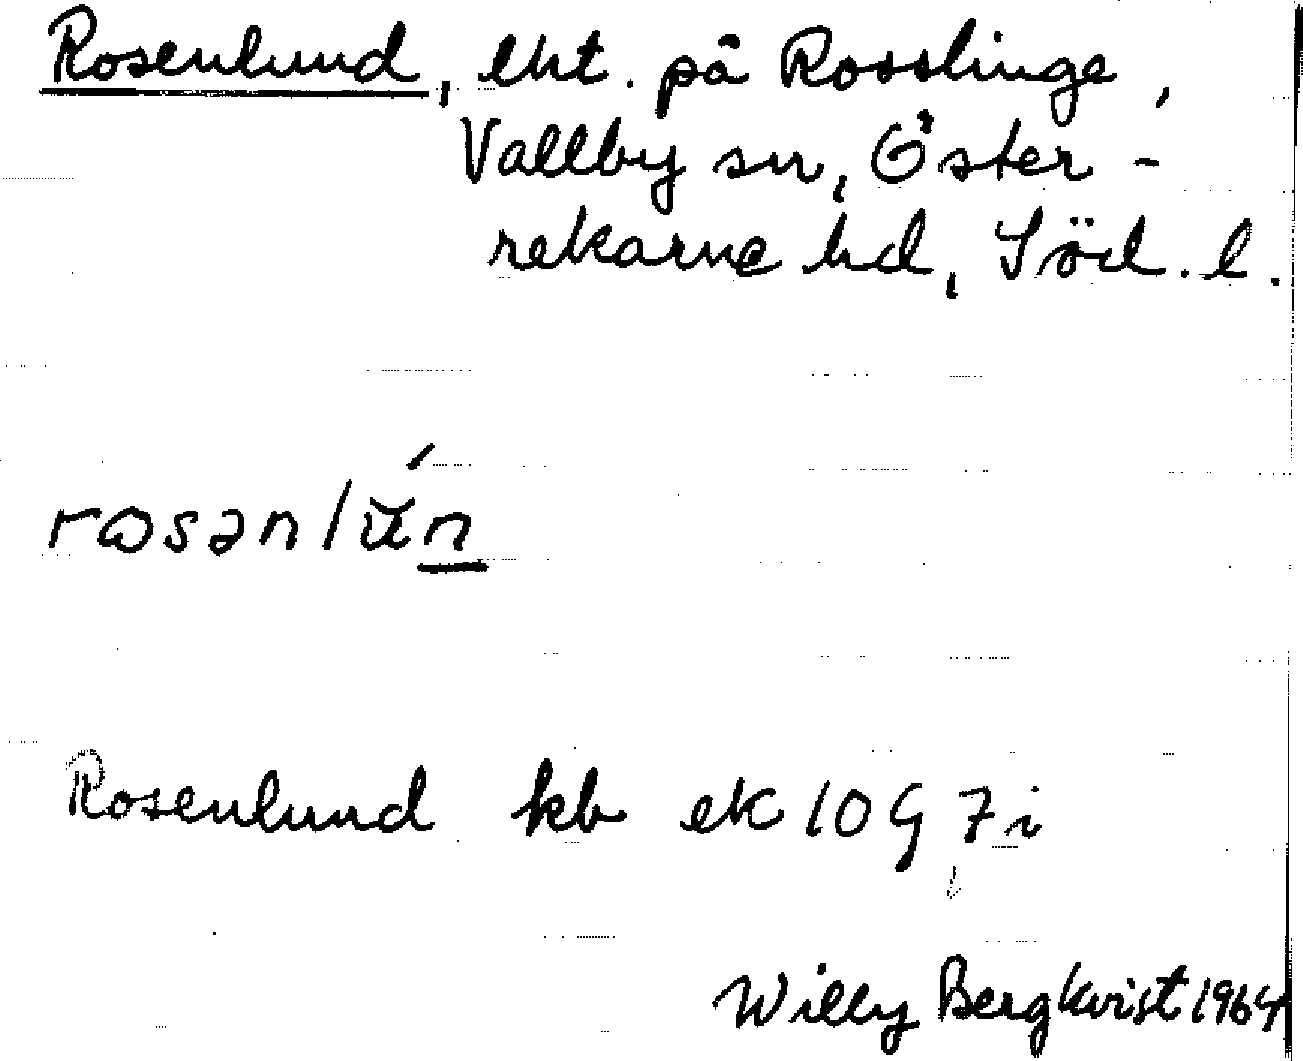 Rosenlund, lht. på Rosslinge,
Vallby sn, Öster-
rekarne hd, Söd. l.
rosənlún
Rosenlund kb ek 10 G 7 i
Willy Bergkvist 1964